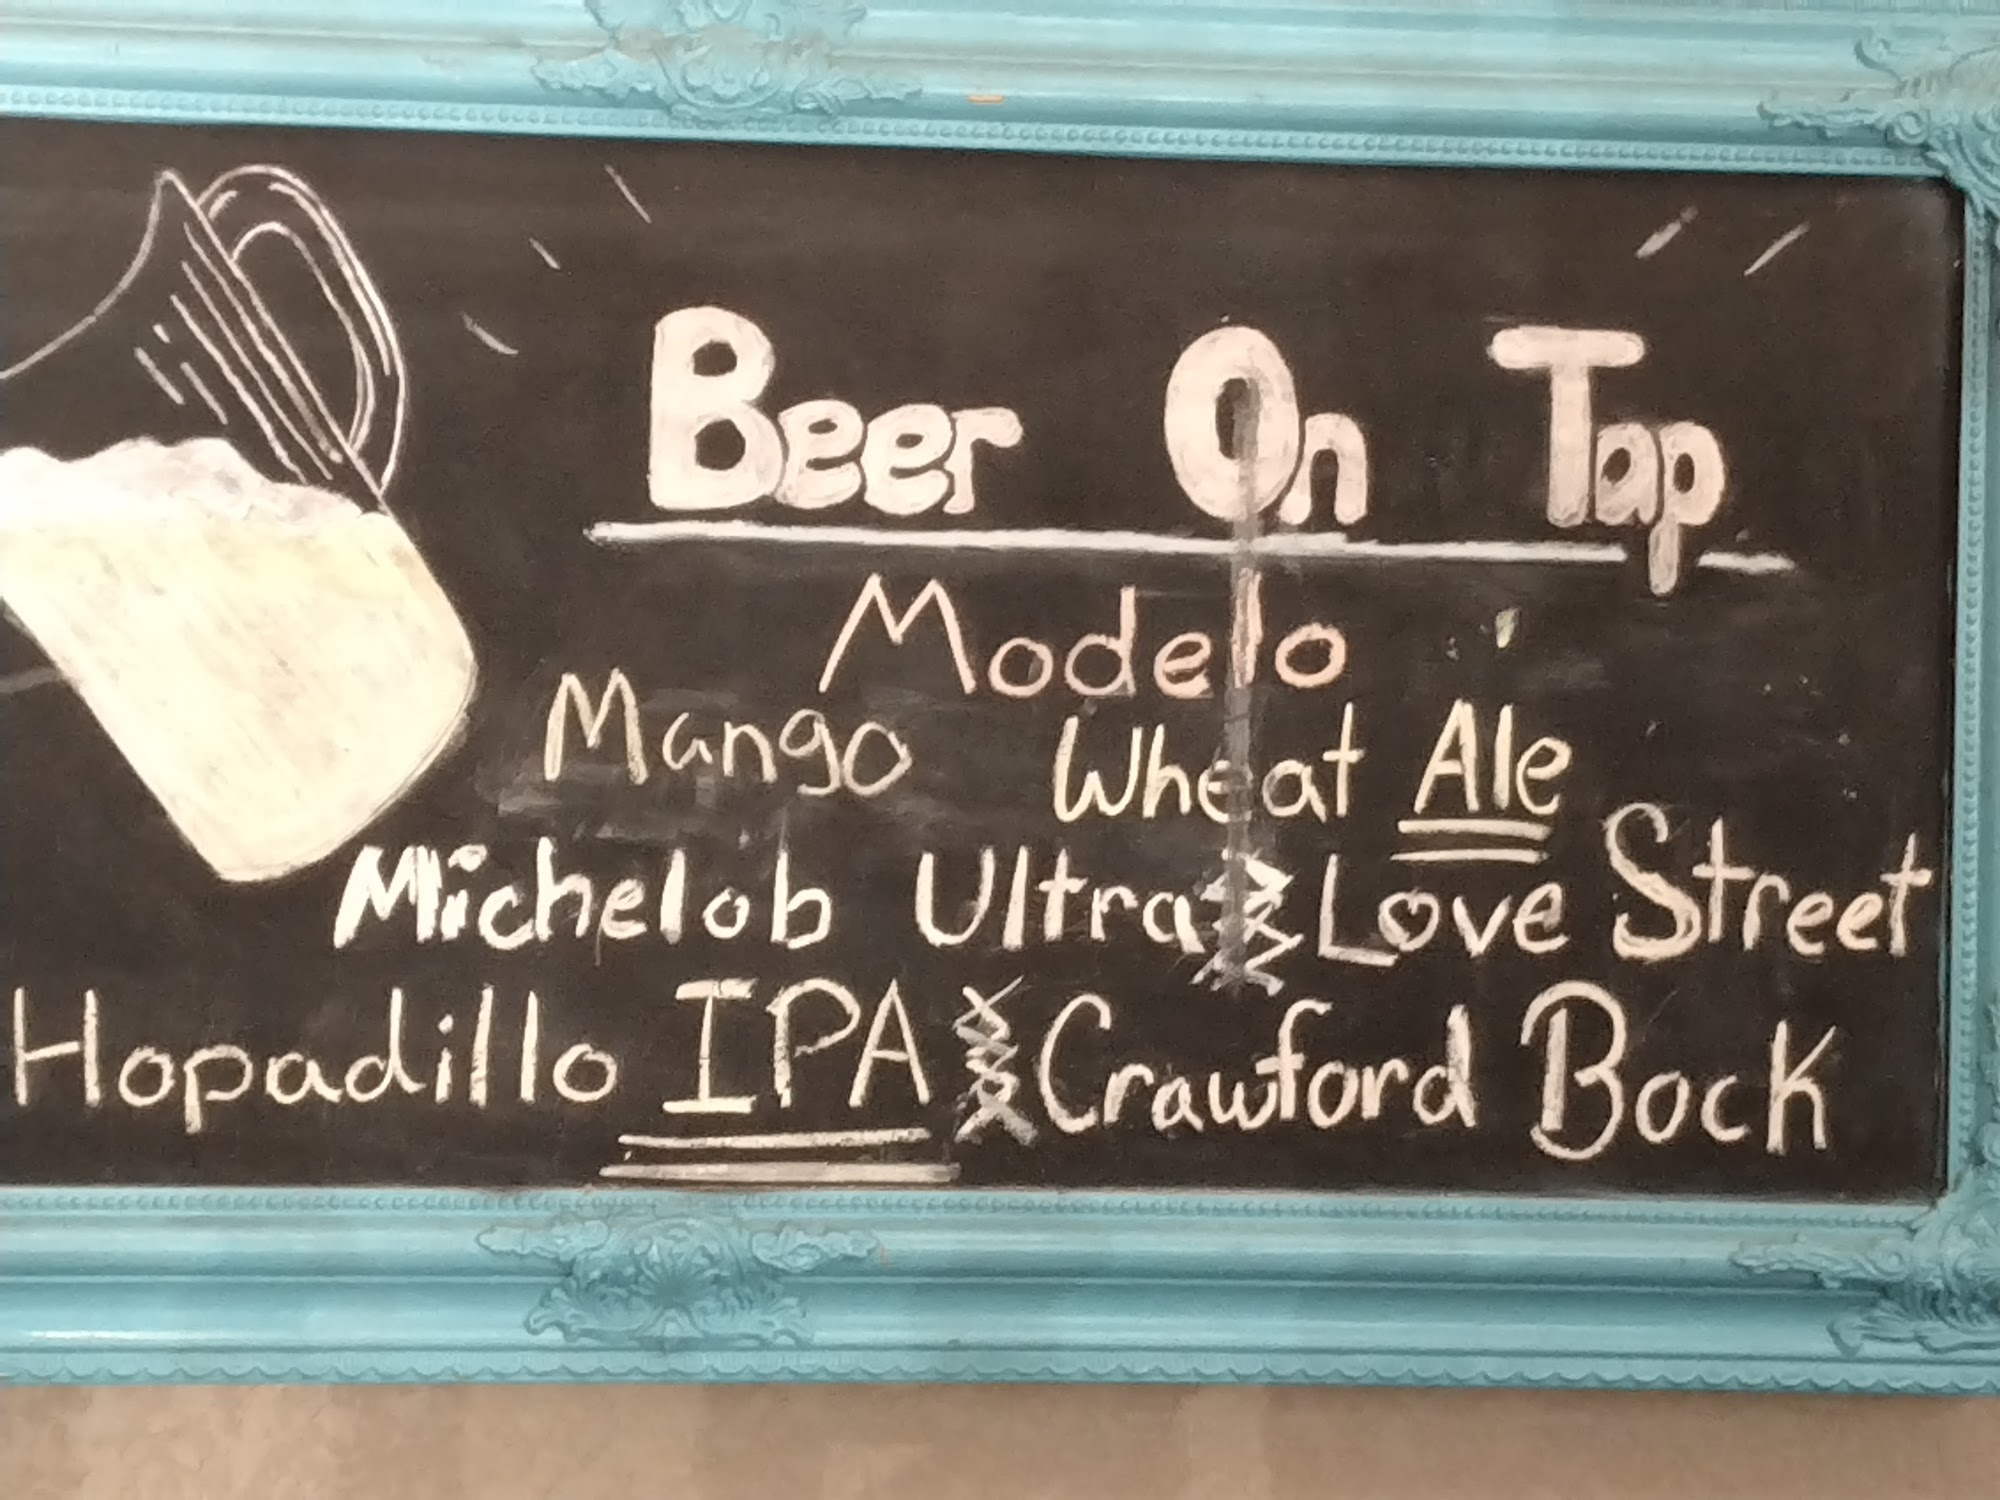 Beer On Tap
Modelo
Mango Wheat Ale
Michelob Ultra Love Street
Hopadillo IPA Crawford Bock